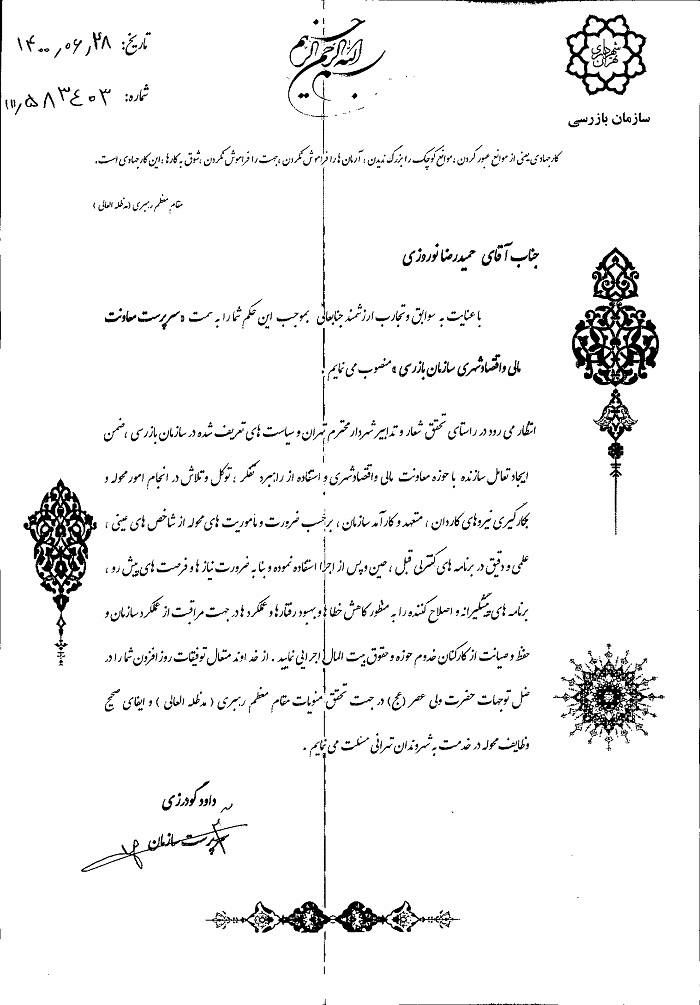 بسم الله الرحمن الرحیم
شهرداری تهران
سازمان بازرسی
تاریخ: ۱۴۰۰/۰۶/۲۸
شماره: ۱۱۱/۵۸۳۴۰۳
کار جهادی یعنی از موانع عبور کردن، موانع کوچک را بزرگ ندیدن، آرمان ها را فراموش نکردن، جهت را فراموش نکردن، شوق به کارها، این کار جهادی است.
مقام معظم رهبری (مدظله العالی)
جناب آقای حمیدرضا نوروزی
با عنایت به سوابق و تجارب ارزشمند جنابعالی بموجب این حکم شما را به سمت «سرپرست معاونت
مالی و اقتصاد شهری سازمان بازرسی» منصوب می نمایم.
انتظار می رود در راستای تحقق شعار و تدابیر شهردار محترم تهران و سیاست های تعریف شده در سازمان بازرسی، ضمن
ایجاد تعامل سازنده با حوزه معاونت مالی و اقتصاد شهری و استفاده از راهبرد تفکر، توکل و تلاش در انجام امور محوله و
بکارگیری نیروهای کاردان، متعهد و کارآمد سازمان، برحسب ضرورت و مأموریت های محوله از شاخص های عینی،
علمی و دقیق در برنامه های کنترلی قبل، حین و پس از اجرا استفاده نموده و بنا به ضرورت نیازها و فرصت های پیش رو،
برنامه های پیشگیرانه و اصلاح کننده را به منظور کاهش خطاها و بهبود رفتارها و عملکردها در جهت مراقبت از عملکرد سازمان و
حفظ و صیانت از کارکنان خدوم حوزه و حقوق بیت المال اجرایی نمایید. از خداوند متعال توفیقات روز افزون شما را در
ظل توجهات حضرت ولی عصر (عج) در جهت تحقق منویات مقام معظم رهبری (مدظله العالی) و ایفای صحیح
وظایف محوله در خدمت به شهروندان تهرانی مسئلت می نمایم.
داود گودرزی
سرپرست سازمان